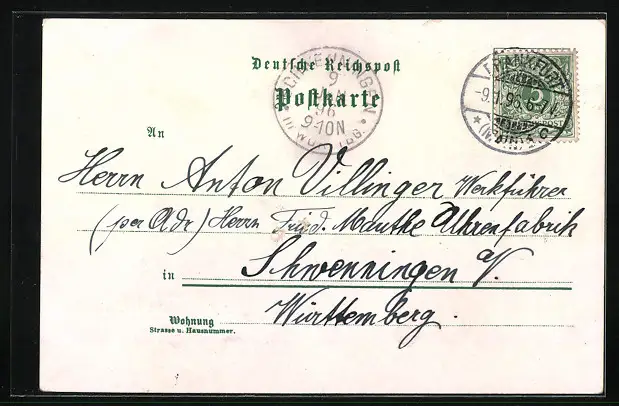 Deutsche Reichspost
Postkarte
SCHWENNINGEN
9
JAN
96
9-10N
WÜRTTBG.
FRANKFURT
-9.1.96. 6-7N.
(MAIN)
An
Herrn Anton Villinger Werkführer
(per Adr) Herrn Fried. Mauthe Uhrenfabrik
in Schwenningen a/N.
Württemberg.
Wohnung
Strasse u. Hausnummer.